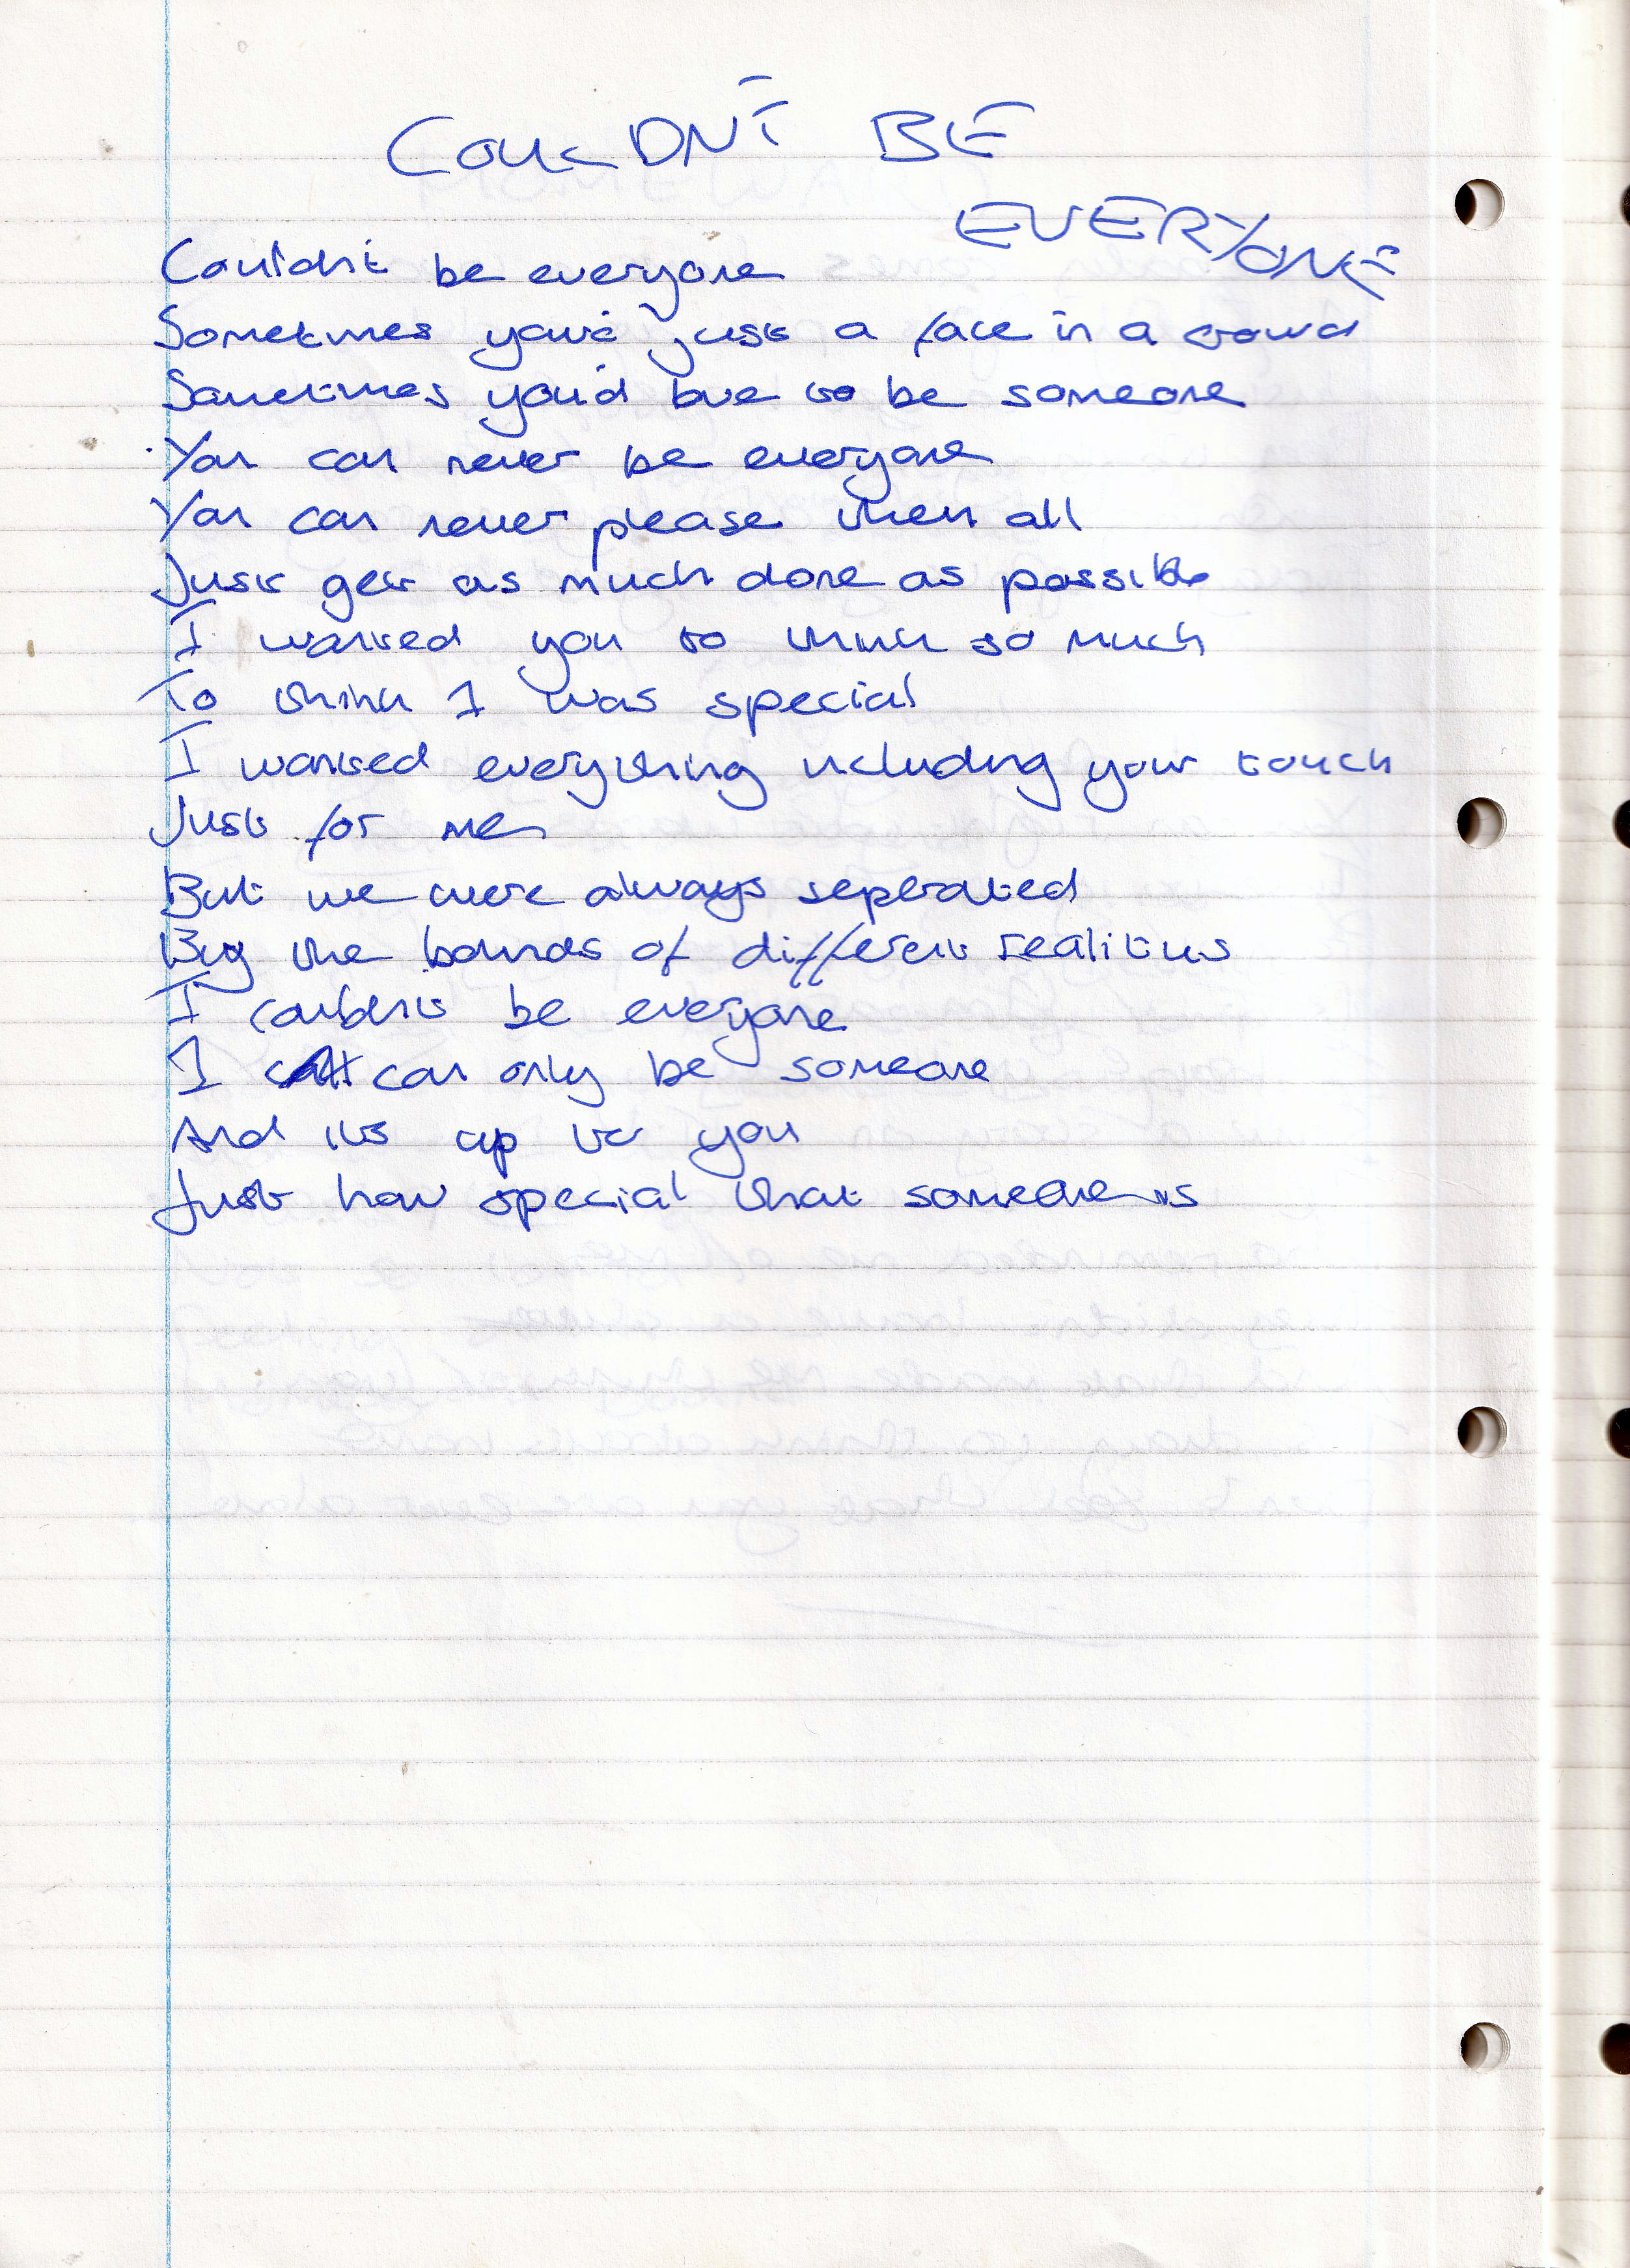 COULDN'T BE
EVERYONE
Couldn't be everyone
Sometimes you're just a face in a crowd
Sometimes you'd love to be someone
You can never be everyone
You can never please them all
Just get as much done as possible
I wanted you to think so much
To think I was special
I wanted everything including your touch
Just for me
But we were always seperated
By the bounds of different realities
I couldn't be everyone
I can only be someone
And its up to you
Just how special that someone is